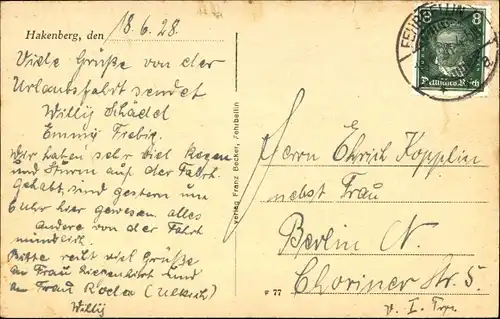 Hakenberg, den 18.6.28.
Viele Grüße von der
Urlaubsfahrt sendet
Willy Schädel
Emmy Fiebig.
Wir haben sehr viel Regen
und Sturm auf der Fahrt
gehabt, sind gestern um
6 Uhr hier gewesen. alles
andere von der Fahrt
mündlich.
Bitte viel Grüße
an Frau und
an Frau
Willy
Verlag Franz Becker, Fehrbellin
FEHRBELLIN
8 8
Deutsches Reich
Herrn Ehrich Kopplin
nebst Frau
Berlin N.
Choriner Str. 5.
v. I. Trp.
F 77